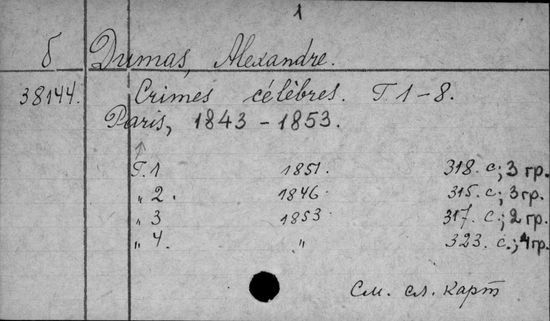 1
б Dumas, Alexandre.
38144. Crimes célèbres. T. 1-8.
Paris, 1843 - 1853.
T. 1 1851. 318. с.; 3 гр.
" 2. 1846. 315. с.; 3 гр.
" 3 1853 317. с.; 2 гр.
" 4. " 323. с.; 4 гр.
См. сл. карт